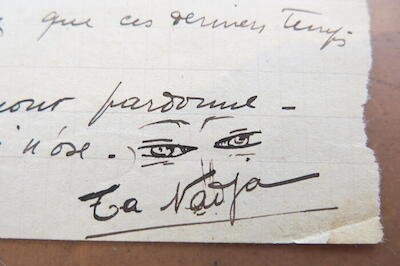 que ces derniers temps
pardonne -
n'ose.
Ta Nadja